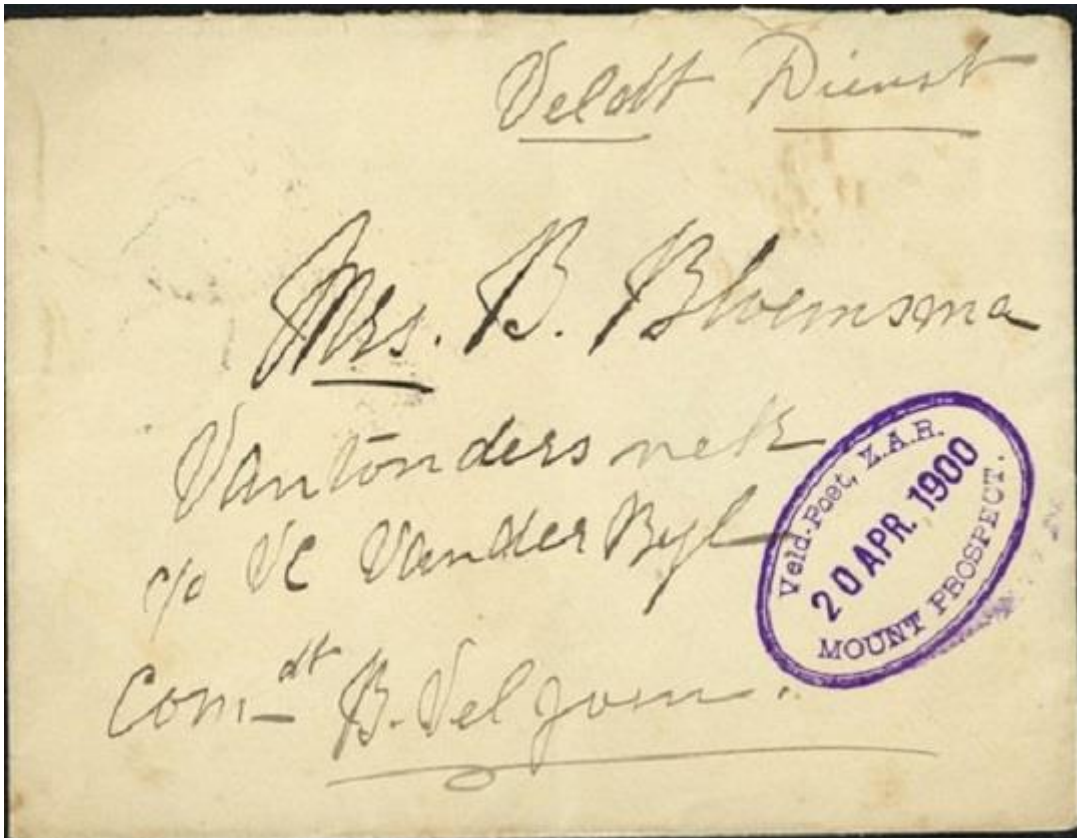 Veldt Dienst
Mrs. B. Bloemsma
Vantonders nek
c/o VC Van der Byl
Comdt B. Veljoen.
Veld-Post, Z.A.R.
20 APR. 1900
MOUNT PROSPECT.